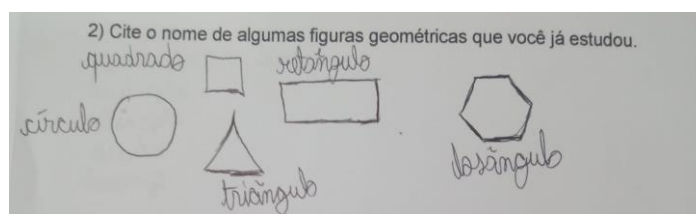 2) Cite o nome de algumas figuras geométricas que você já estudou.
quadrado
retângulo
círculo
triângulo
losângulo